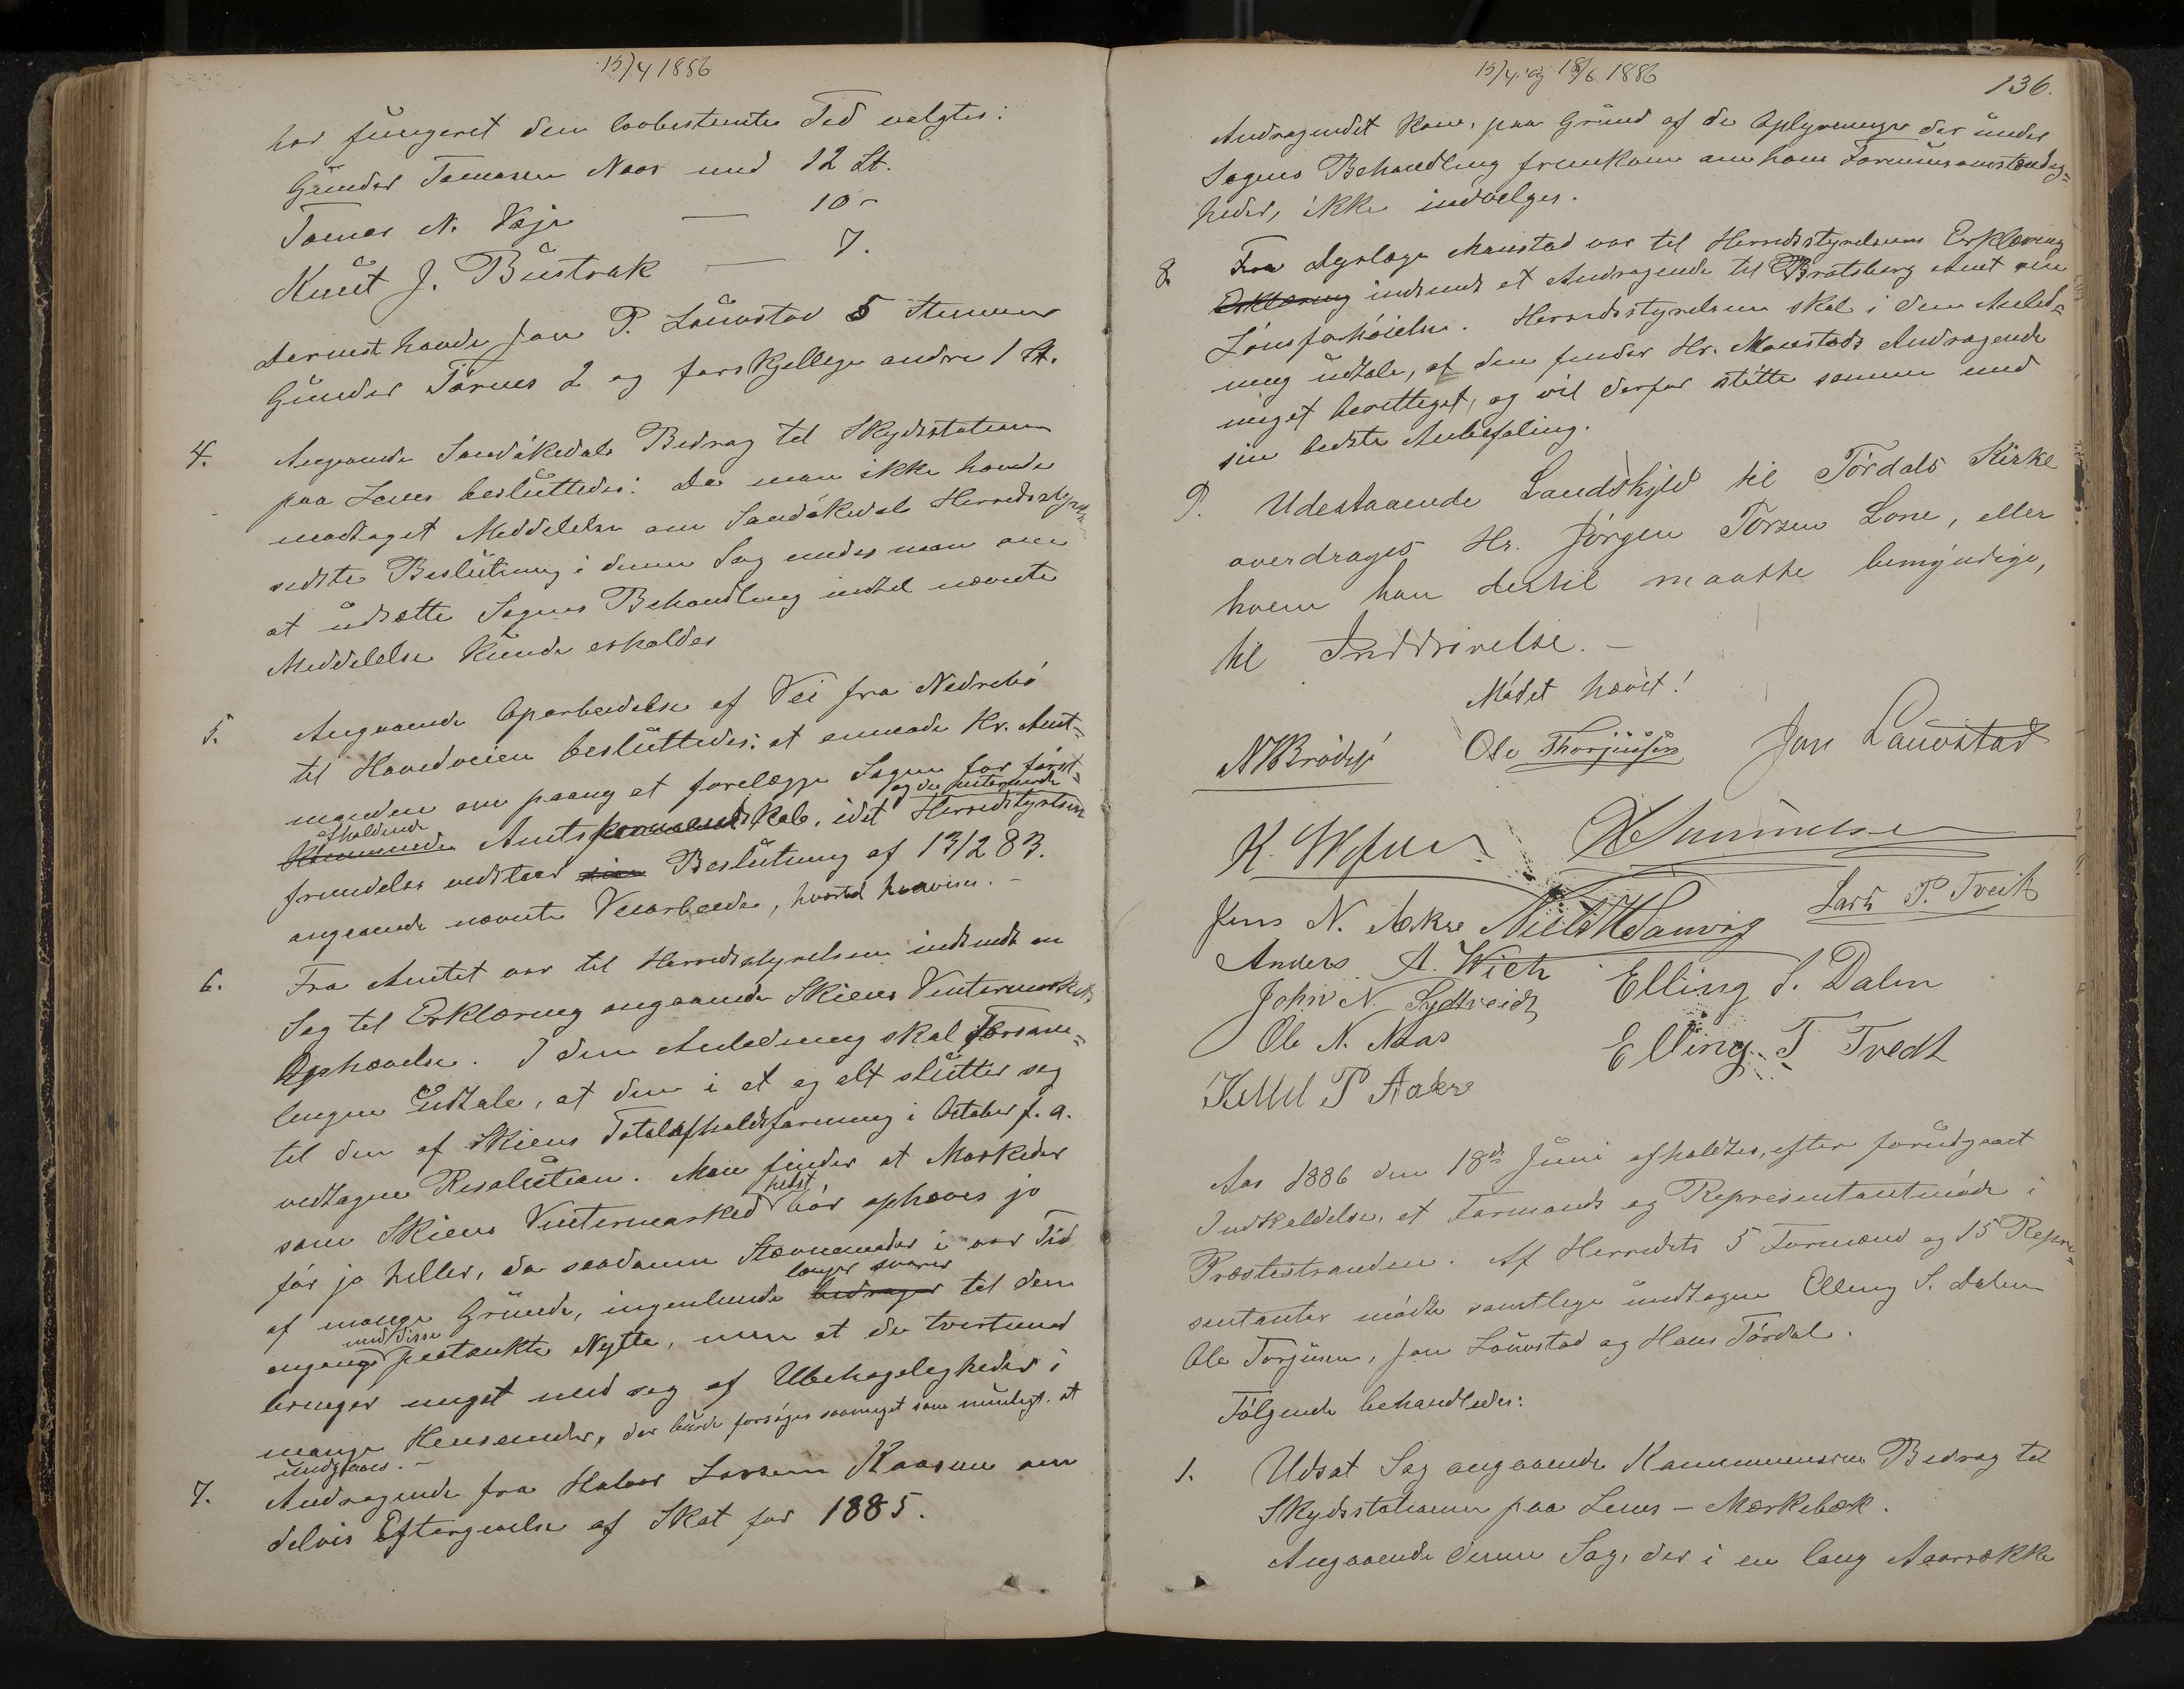 15/4 1886
har fungeret den lovbestemte Tid valgtes:
Gunder Tomasen Naas med 12 St.
Tomas N. Vaje — 10 -
Knut J. Bustrak — 7.
Dernest havde Jan P. Lauvstad 5 Stemmer
Gunder Törnes 2 og forskjellige andre 1 St.
4. Angaaende Sandökedals Bidrag til Skydsstationen
paa Lenes besluttedes: Da man ikke havde
modtaget Meddelelse om Sandökedals Herredsstyrelses
sidste Beslutning i denne Sag enedes man om
at udsætte Sagens Behandling indtil nævnte
Meddelelse kunde erholdes
5. Angaaende Oparbeidelse af Vei fra Nedrebö
til Hovedveien besluttedes: at anmode Hr. Amt=
manden om paany at forelægge Sagen for först=
afholdende Amtsformandskab, idet Herredstyrelsen
fremdeles vedstaar sin Beslutning af 13/2 83.
angaaende nævnte Veiarbeide, hvortil henvises. -
6. Fra Amtet var til Herredsstyrelsen indsendt en
Sag til Erklæring angaaende Skiens Vintermarkeds
Ophævelse. I den Anledning skal Forsam=
lingen udtale, at den i et og alt slutter sig
til den af Skiens Totalafholdsforening i October f. a.
vedtagne Resolution. Man finder at Markeder
som Skiens Vintermarked helst bör ophæves jo
för jo heller, da saadanne Stævnemöder i vor Tid
af mange Grunde, ingenlunde bidrager længer svarer til den
engang med disse paatænkte Nytte, men at de tvertimod
bringer meget med sig af Ubehageligheder i
mange Henseender, der burde forsöges saameget som muligt at
undgaaes. -
7. Andragende fra Halvor Larsen Kaasene om
delvis Eftergivelse af Skat for 1885.
15/4 og 18/6 1886
136.
Andragendet kan, paa Grund af de Oplysninger der under
Sagens Behandling fremkom om hans Formuesomstændig=
heder, ikke indvilges.
8. Fra Dyrlæge Manstad var til Herredsstyrelsens Erklæring
Erklæring indsendt et Andragende til Bratsberg Amt om
Lönsforhöielse. Herredsstyrelsen skal i den Anled=
ning udtale, at den finder Hr. Manstads Andragende
meget berettiget, og vil derfor stötte samme med
sin bedste Anbefaling.
9. Udestaaende Landskyld til Tördals Kirke
overdrages Hr. Jörgen Torsen Lone, eller
hvem han dertil maatte bemyndige,
til Inddrivelse. -
Mödet hævet!
N Brödsjö Ole Thorjussen Jan Lauvstad
Jens N. Aakre Lars P. Tveit
Anders A. Wieh Elling S. Dalen
John N. Sydtveidt
Ole N. Naas Elling T Tvedt
Kittil P Aakre
Aar 1886 den 18de Juni afholdtes, efter forudgaaet
Indkaldelse, et Formands og Representantmöde i
Præstestranden. Af Herredets 5 Formænd og 15 Repre=
sentanter mödte samtlige undtagen Elling S. Dalen
Ole Torjusen, Jan Lauvstad og Hans Tördal.
Fölgende behandledes:
1. Udsat Sag angaaende Kommunens Bidrag til
Skydsstationen paa Lenes - Mærkebæk.
Angaaende denne Sag, der i en lang Aarrække